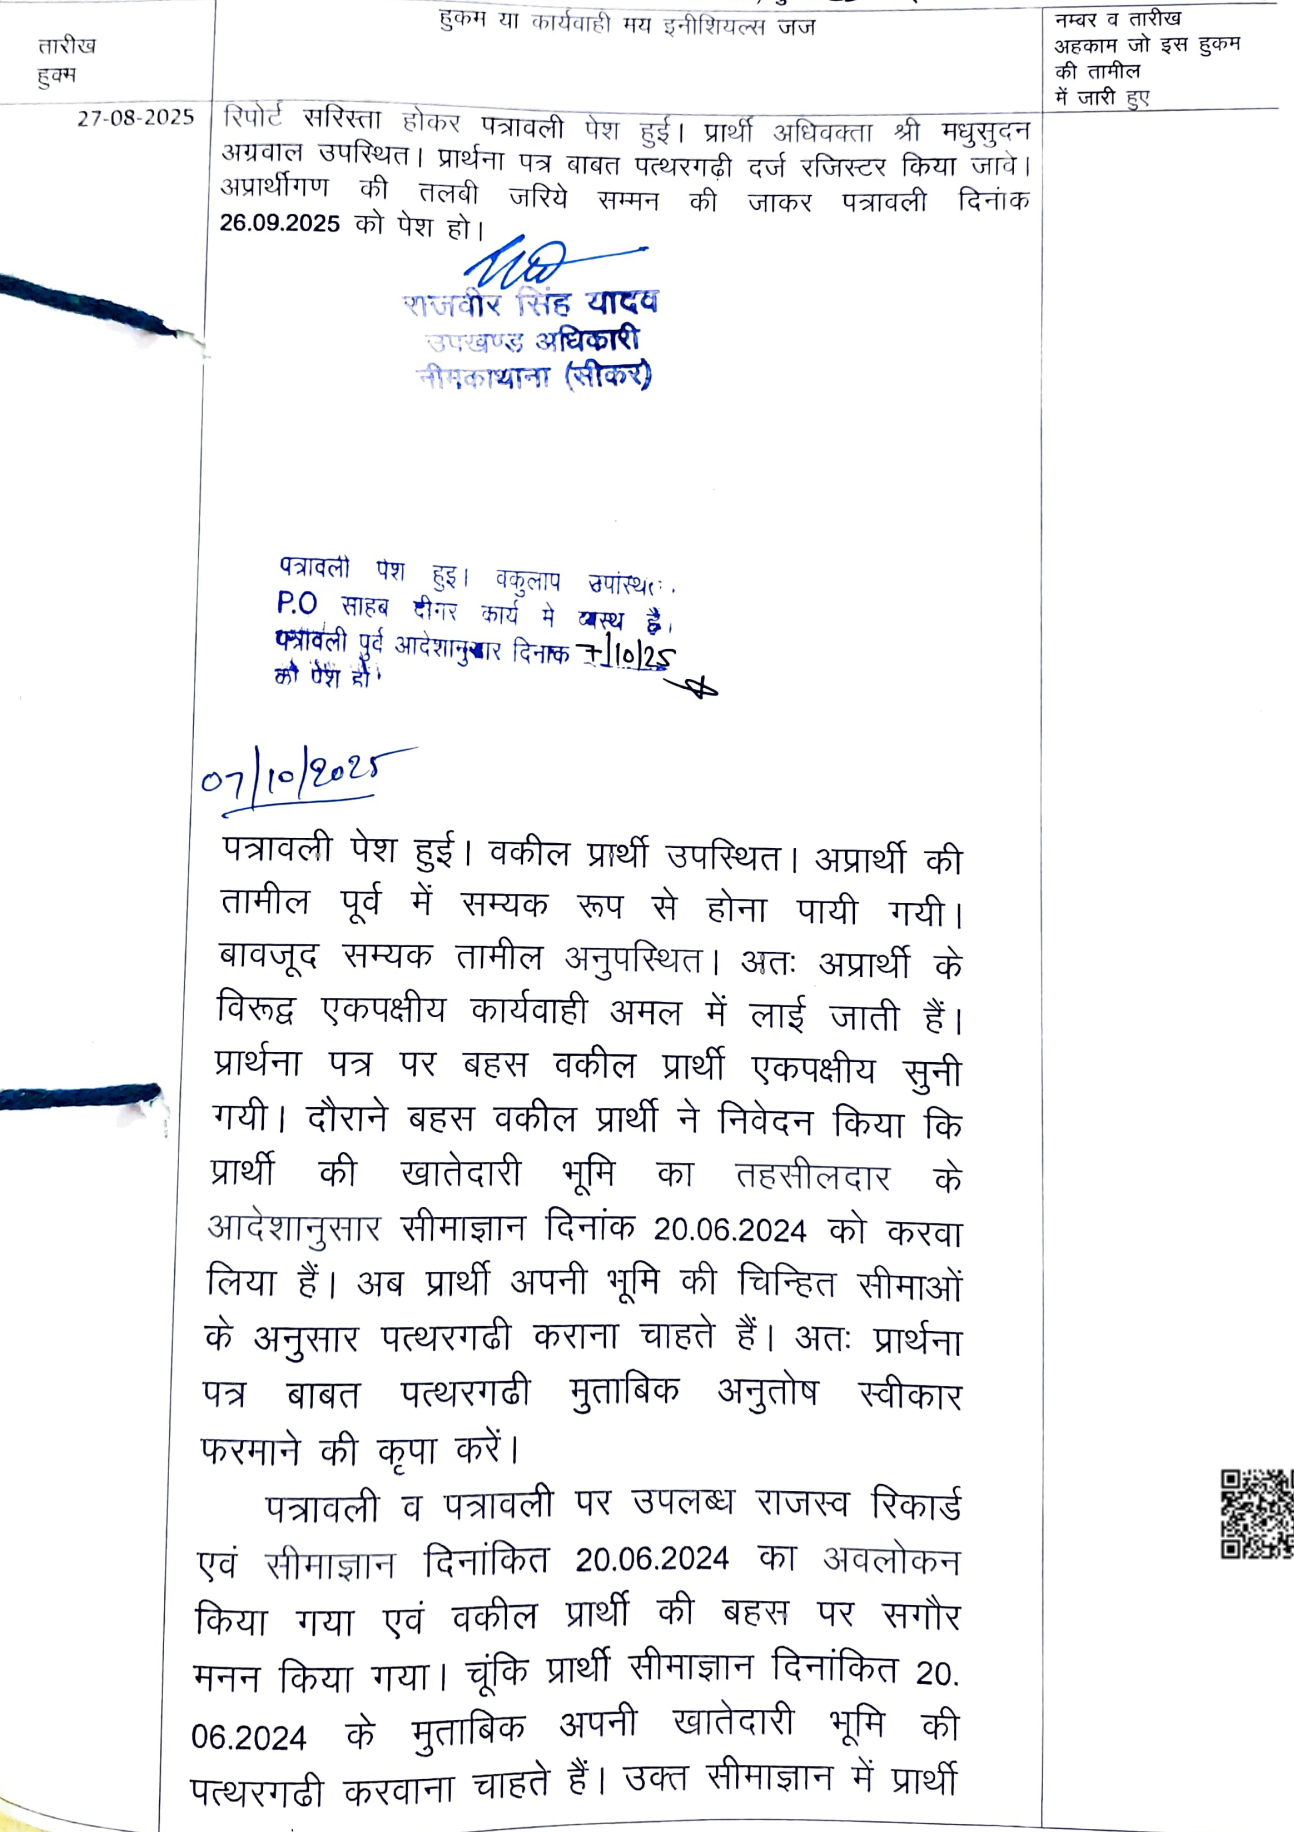 हुकम या कार्यवाही मय इनीशियल्स जज
तारीख
हुक्म
नम्बर व तारीख
अहकाम जो इस हुकम
की तामील
में जारी हुए
27-08-2025
रिपोर्ट सरिस्ता होकर पत्रावली पेश हुई। प्रार्थी अधिवक्ता श्री मधुसुदन
अग्रवाल उपस्थित। प्रार्थना पत्र बाबत पत्थरगढ़ी दर्ज रजिस्टर किया जावे।
अप्रार्थीगण की तलबी जरिये सम्मन की जाकर पत्रावली दिनांक
26.09.2025 को पेश हो।
राजवीर सिंह यादव
उपखण्ड अधिकारी
नीमकाथाना (सीकर)
पत्रावली पेश हुइ। वकुलाप उपस्थित
P.O साहब दीगर कार्य मे व्यस्थ है।
पत्रावली पुर्व आदेशानुसार दिनाक 7/10/25
को पेश हो
07/10/2025
पत्रावली पेश हुई। वकील प्रार्थी उपस्थित। अप्रार्थी की
तामील पूर्व में सम्यक रूप से होना पायी गयी।
बावजूद सम्यक तामील अनुपस्थित। अतः अप्रार्थी के
विरूद्व एकपक्षीय कार्यवाही अमल में लाई जाती हैं।
प्रार्थना पत्र पर बहस वकील प्रार्थी एकपक्षीय सुनी
गयी। दौराने बहस वकील प्रार्थी ने निवेदन किया कि
प्रार्थी की खातेदारी भूमि का तहसीलदार के
आदेशानुसार सीमाज्ञान दिनांक 20.06.2024 को करवा
लिया हैं। अब प्रार्थी अपनी भूमि की चिन्हित सीमाओं
के अनुसार पत्थरगढी कराना चाहते हैं। अतः प्रार्थना
पत्र बाबत पत्थरगढी मुताबिक अनुतोष स्वीकार
फरमाने की कृपा करें।
पत्रावली व पत्रावली पर उपलब्ध राजस्व रिकार्ड
एवं सीमाज्ञान दिनांकित 20.06.2024 का अवलोकन
किया गया एवं वकील प्रार्थी की बहस पर सगौर
मनन किया गया। चूंकि प्रार्थी सीमाज्ञान दिनांकित 20.
06.2024 के मुताबिक अपनी खातेदारी भूमि की
पत्थरगढी करवाना चाहते हैं। उक्त सीमाज्ञान में प्रार्थी